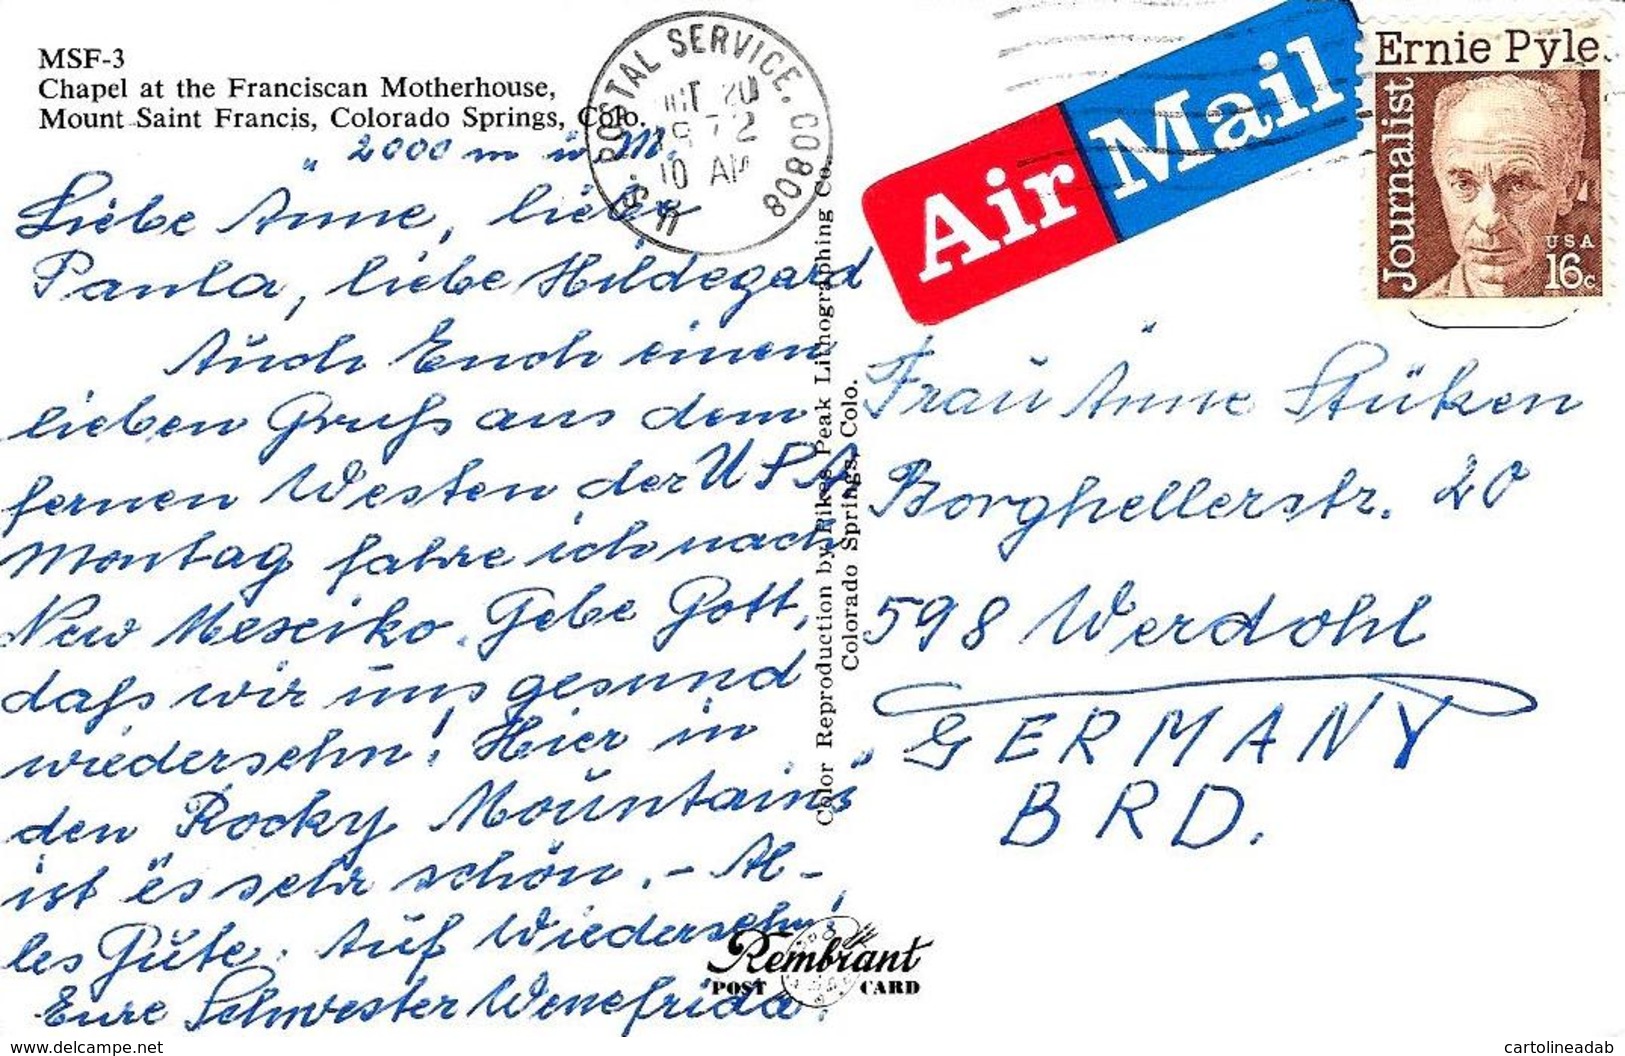 MSF-3
Chapel at the Franciscan Motherhouse,
Mount Saint Francis, Colorado Springs, Colo.
" 2000 m ü M.
Liebe Änne, liebe
Paula, liebe Hildegard
Auch Euch einen
lieben Gruß aus dem
fernen Westen der USA
Montag fahre ich nach
New Mexciko. Gebe Gott,
daß wir uns gesund
wiedersehn! Hier in
den Rocky Mountains"
ist es sehr schön. - Al-
les Gute. Auf Wiedersehn!
Eure Schwester Wenefrida.
U.S. POSTAL SERVICE. CO 808
OCT 20
1972
10 AM
Color Reproduction by Pikes Peak Lithographing Co.
Colorado Springs, Colo.
Air Mail
Ernie Pyle
Journalist
USA
16c
Frau Änne Stüken
Borghellerstr. 20
598 Werdohl
GERMANY
BRD.
Rembrant
POST CARD
www.delcampe.net
cartolineadab